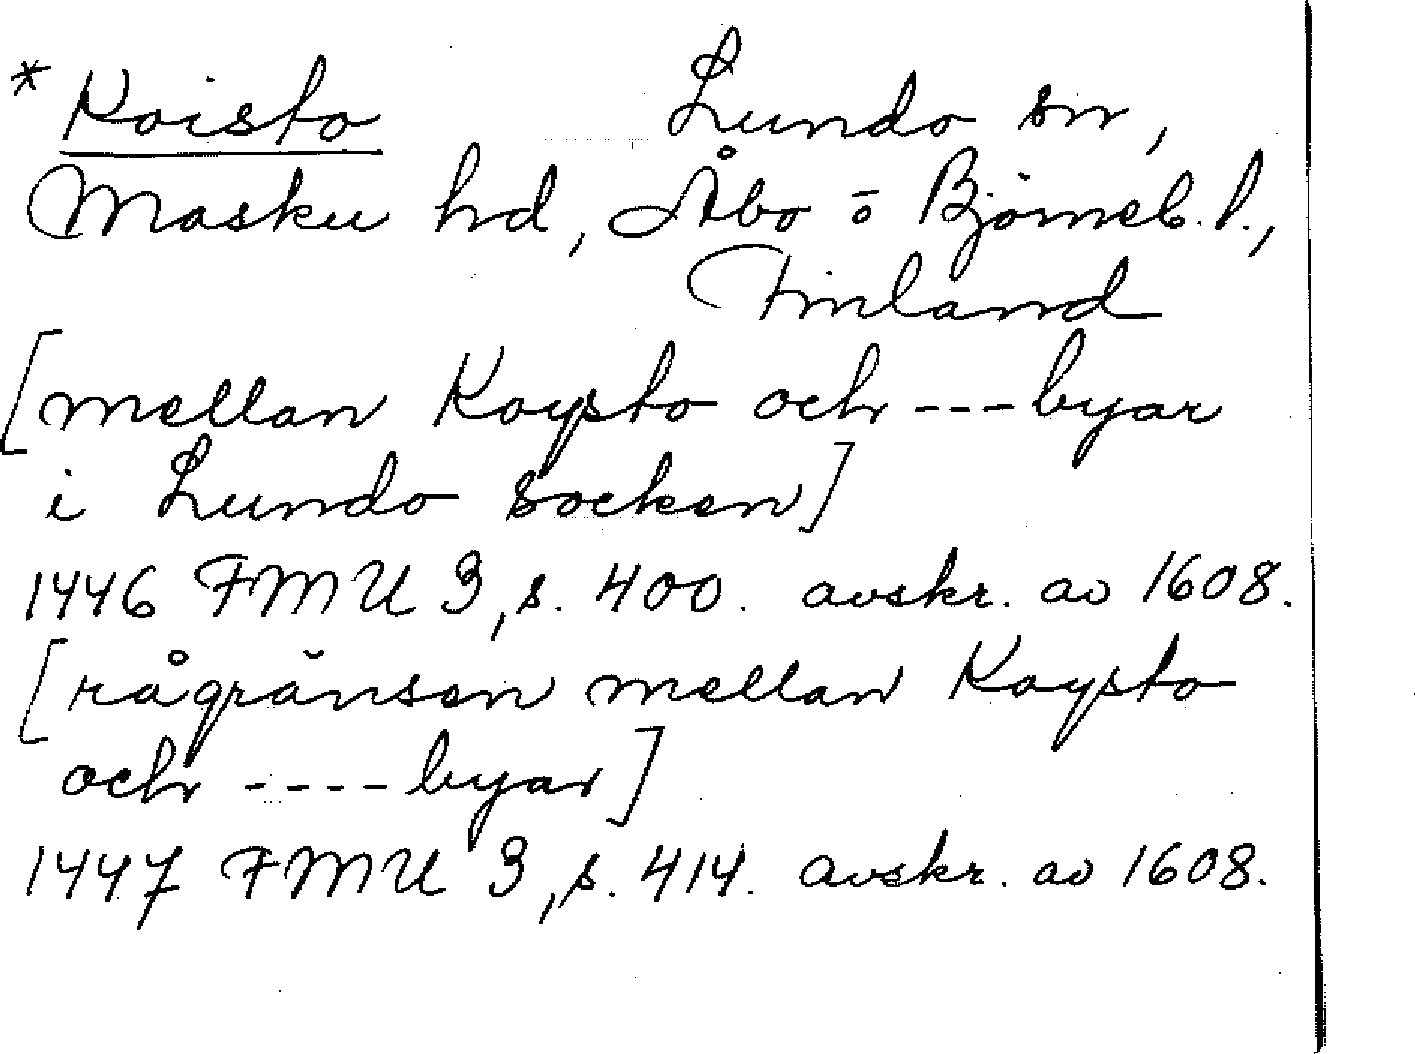 * Koisto Lundo sn,
Masku hd, Åbo o Björneb. l.,
Finland
[mellan Koysto och --- byar
i Lundo socken]
1446 FMU 3, s. 400. avskr. av 1608.
[rågränsen mellan Koysto
och ---- byar]
1447 FMU 3, s. 414. avskr. av 1608.